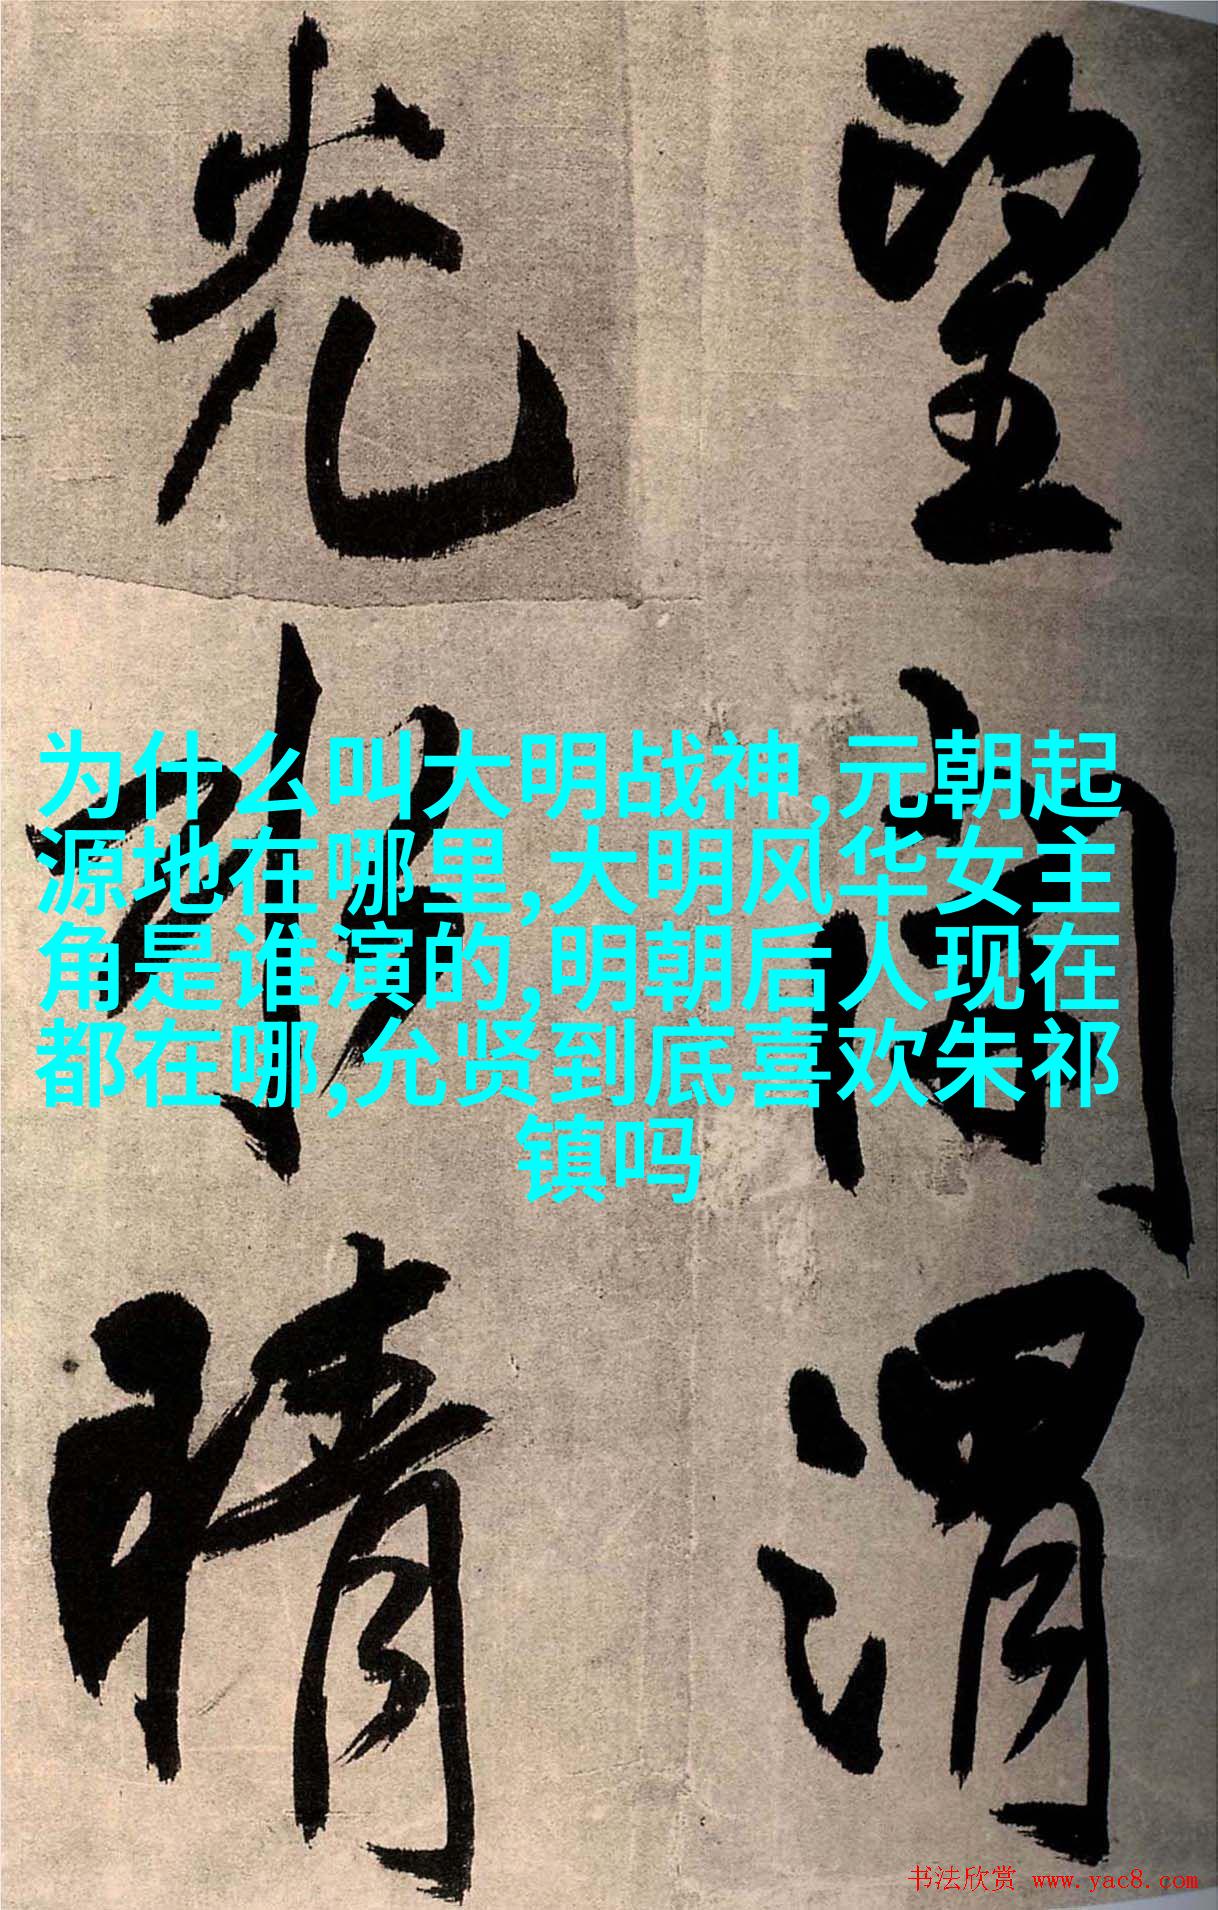 望渭
光晴
为什么叫大明战神,元朝起
源地在哪里,大明风华女主
角是谁演的,明朝后人现在
都在哪,允贤到底喜欢朱祁
镇吗
书法欣赏 www.yac8.com